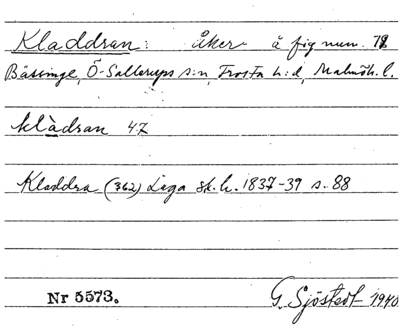 Kladdran: åker å fig num.
Bässinge, Ö-Sallerups s:n, Frosta h:d, Malmöh. l.
klàdran 47
Kladdra (362) Laga sk. h. 1837-39 s. 88
Nr 5573. G. Sjöstedt 1940